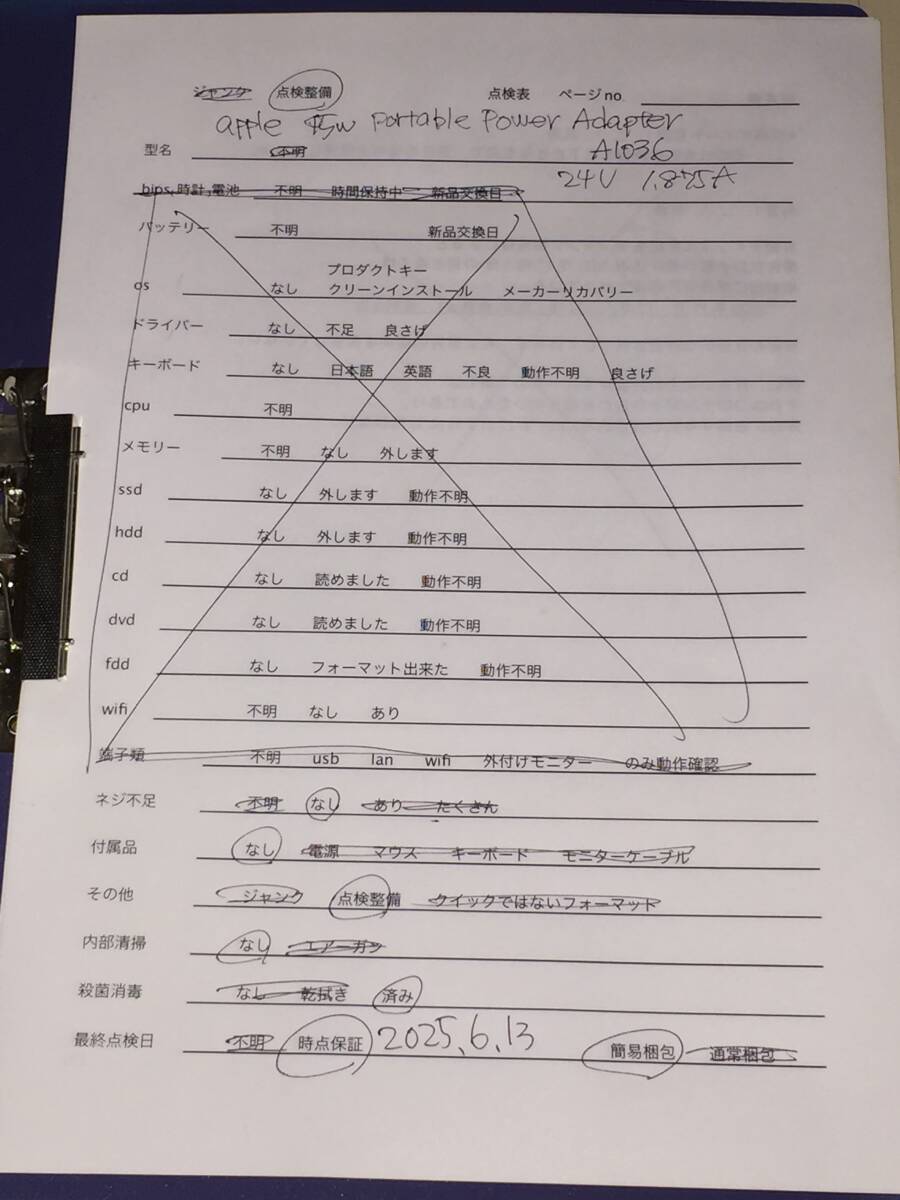 ジャンク 点検整備 点検表 ページno
apple 45w Portable Power Adapter
型名 不明 A1036
24V 1.875A
bips,時計,電池 不明 時間保持中 新品交換日
バッテリー 不明 新品交換日
プロダクトキー
os なし クリーンインストール メーカーリカバリー
ドライバー なし 不足 良さげ
キーボード なし 日本語 英語 不良 動作不明 良さげ
cpu 不明
メモリー 不明 なし 外します
ssd なし 外します 動作不明
hdd なし 外します 動作不明
cd なし 読めました 動作不明
dvd なし 読めました 動作不明
fdd なし フォーマット出来た 動作不明
wifi 不明 なし あり
端子類 不明 usb lan wifi 外付けモニター のみ動作確認
ネジ不足 不明 なし あり たくさん
付属品 なし 電源 マウス キーボード モニターケーブル
その他 ジャンク 点検整備 クイックではないフォーマット
内部清掃 なし エアーガン
殺菌消毒 なし 乾拭き 済み
最終点検日 不明 時点保証 2025.6.13 簡易梱包 通常梱包